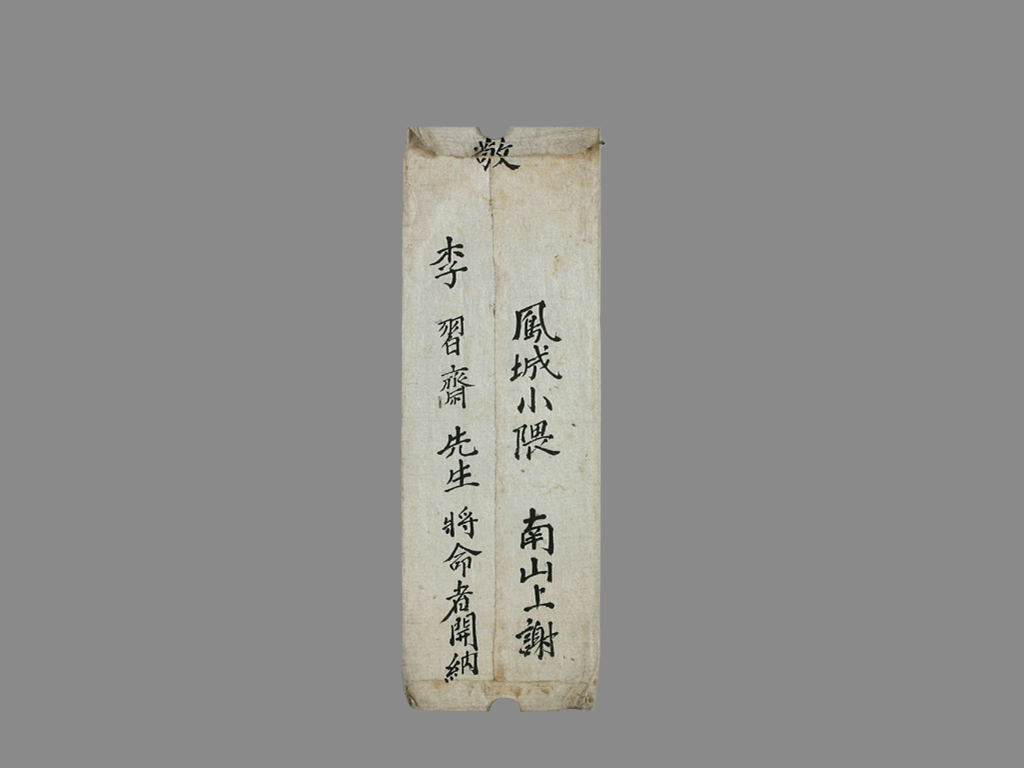 敬
鳳城小隈 南山上謝
李 習齋 先生 將命者開納